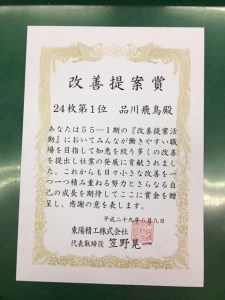 改善提案賞
24枚第1位　品川飛鳥殿
あなたは55－1期の『改善提案活
動』においてみんなが働きやすい職
場を目指して知恵を絞り多くの改善
を提出し社業の発展に貢献されまし
た。これからも日々小さな改善を一
つ一つ積み重ねる努力とさらなる自
己の成長を期待してここに賞金を贈
呈し、感謝の意を表します。
平成二十九年六月九日
東陽精工株式会社
代表取締役　笠野晃一